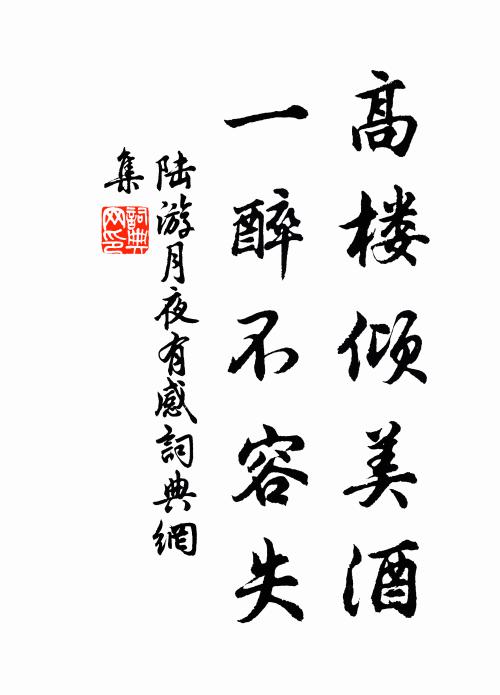 高楼倾美酒
一醉不容失
陆游月夜有感詞典網
集
詞典网印